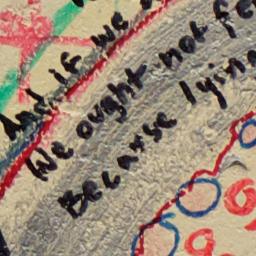 And if we
We ought not fe
Because lying